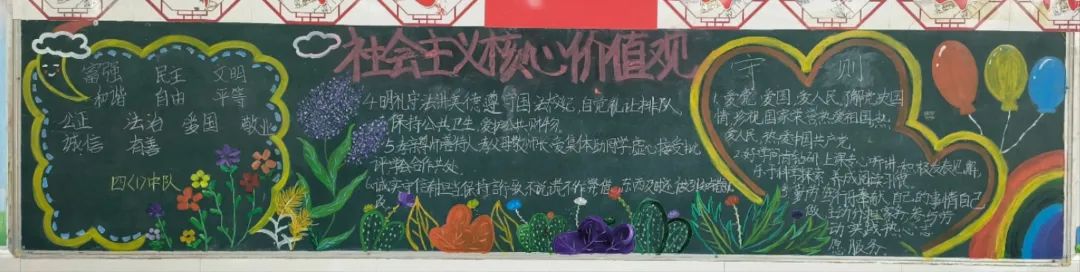 社会主义核心价值观
富强 民主 文明
和谐 自由 平等
公正 法治 爱国 敬业
诚信 有善
四(1)中队
4.明礼守法讲美德遵守国法校纪,自觉礼让排队,
保持公共卫生,爱护公共财物.
5.孝亲尊师善待人孝父母敬师长,爱集体助同学虚心接受批
评学会合作共处.
6.诚实守信有担当保持言行一致不说谎不作弊借东西及时还
守则
1.爱党爱国爱人民了解党史国
情,珍视国家荣誉热爱祖国,热
爱人民,热爱中国共产党,
2.好学多问肯钻研上课专心听讲积极发表见解,
乐于科学探索,养成阅读习惯.
3.勤劳笃行乐奉献自己的事情自己
做主动分担家务参与劳
动实践热心志
愿服务.